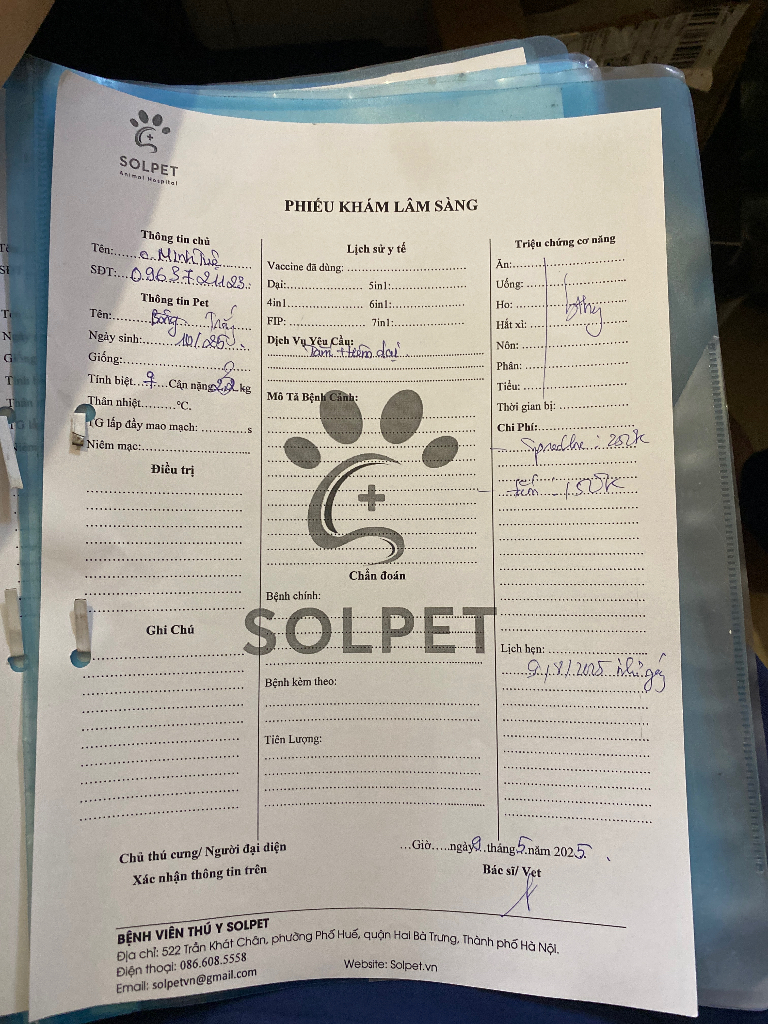 SOLPET
Animal Hospital
PHIẾU KHÁM LÂM SÀNG
Thông tin chủ
Tên:
SĐT: 0963721123
Thông tin Pet
Tên: Bông
Ngày sinh:
Giống:
Tính biệt ♀ Cân nặng 2,2 kg
Thân nhiệt..........°C.
TG lấp đầy mao mạch: ...............s
Niêm mạc:
Điều trị
Ghi Chú
Lịch sử y tế
Vaccine đã dùng:
Dại: 5in1:
4in1 6in1:
FIP: 7in1:
Dịch Vụ Yêu Cầu:
Tiêm dại
Mô Tả Bệnh Cảnh:
SOLPET
Chẩn đoán
Bệnh chính:
Bệnh kèm theo:
Tiên Lượng:
Triệu chứng cơ năng
Ăn:
Uống:
Ho:
Hắt xì:
Nôn:
Phân:
Tiểu:
Thời gian bị:
Chi Phí:
150K
Lịch hẹn:
/2025
...Giờ.....ngày 9 tháng 5 năm 2025.
Chủ thú cưng/ Người đại diện
Xác nhận thông tin trên
Bác sĩ/ Vet
BỆNH VIỆN THÚ Y SOLPET
Địa chỉ: 522 Trần Khát Chân, phường Phố Huế, quận Hai Bà Trưng, Thành phố Hà Nội.
Điện thoại: 086.608.5558
Email: solpetvn@gmail.com
Website: Solpet.vn